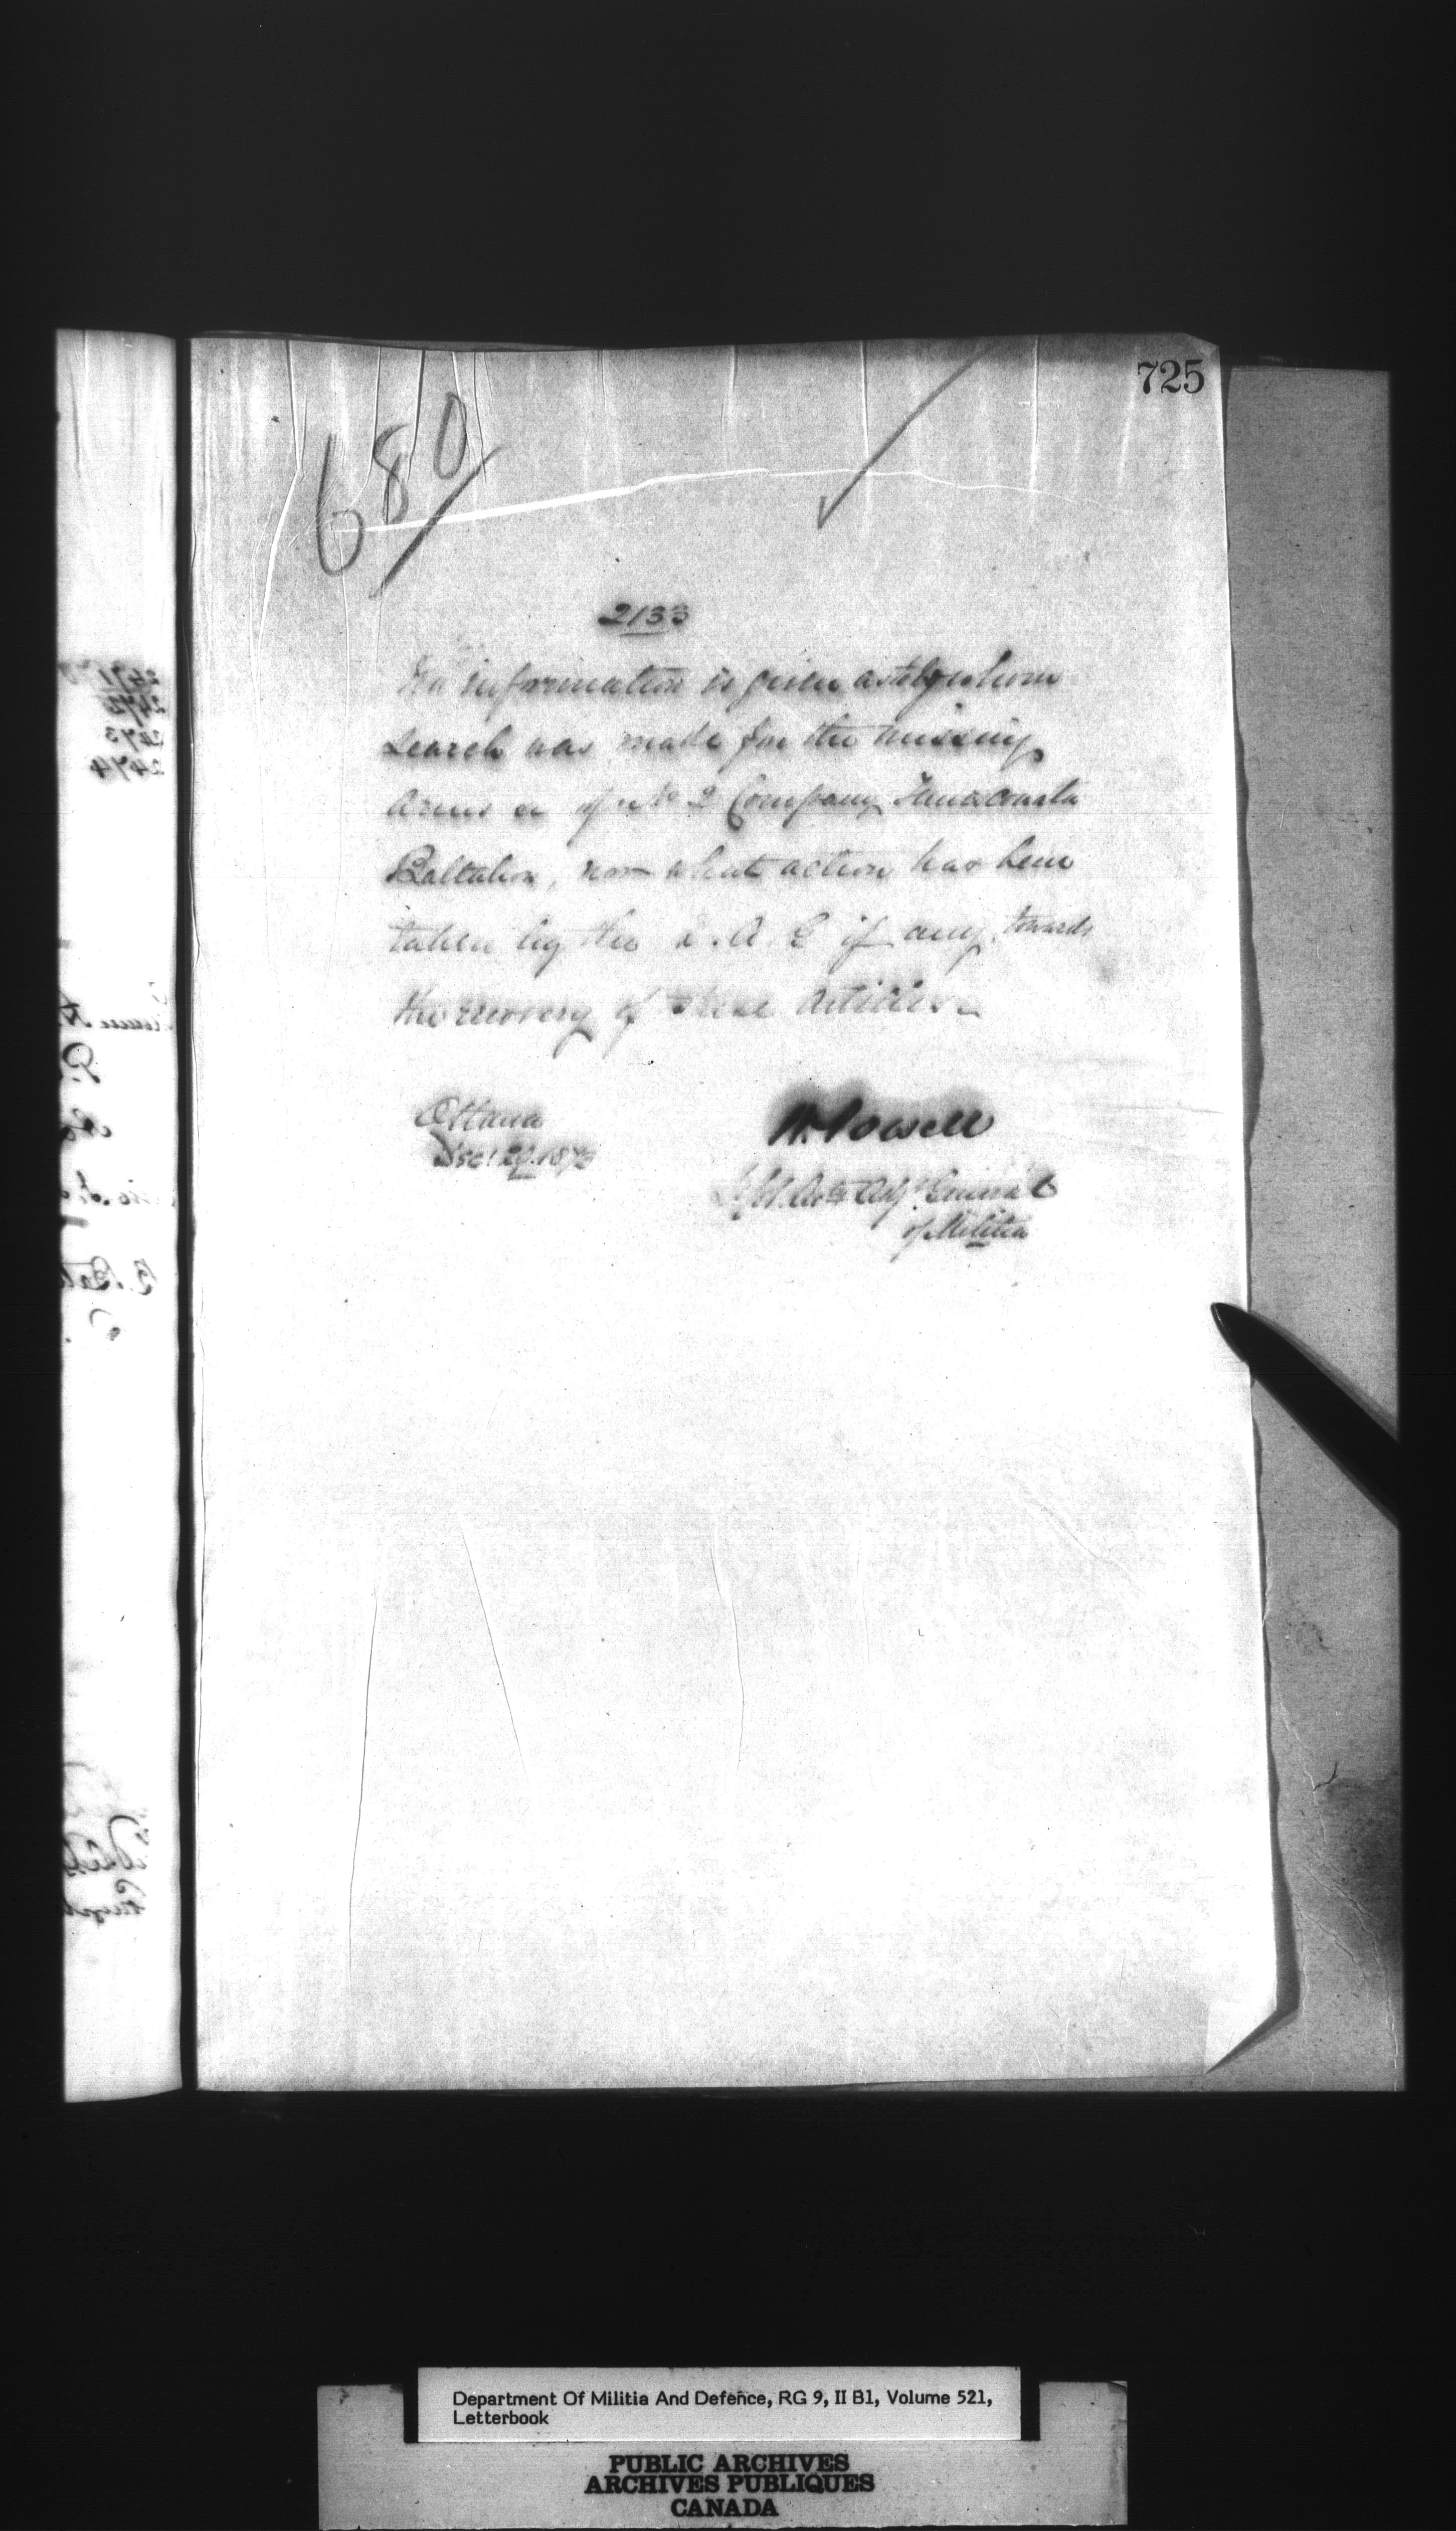 725
680/
2133
No information is given as to by whom
search was made for the missing
arms &c of No 2 Company Temiscouata
Battalion, nor what action has been
taken by the D.A.G if any, towards
the recovery of these articles.
Ottawa
Dec. 29. 187
W. Powell
Lt Col. Actg Adjt General
of Militia
2471
2472
2473
2474
Department Of Militia And Defence, RG 9, II B1, Volume 521,
Letterbook
PUBLIC ARCHIVES
ARCHIVES PUBLIQUES
CANADA